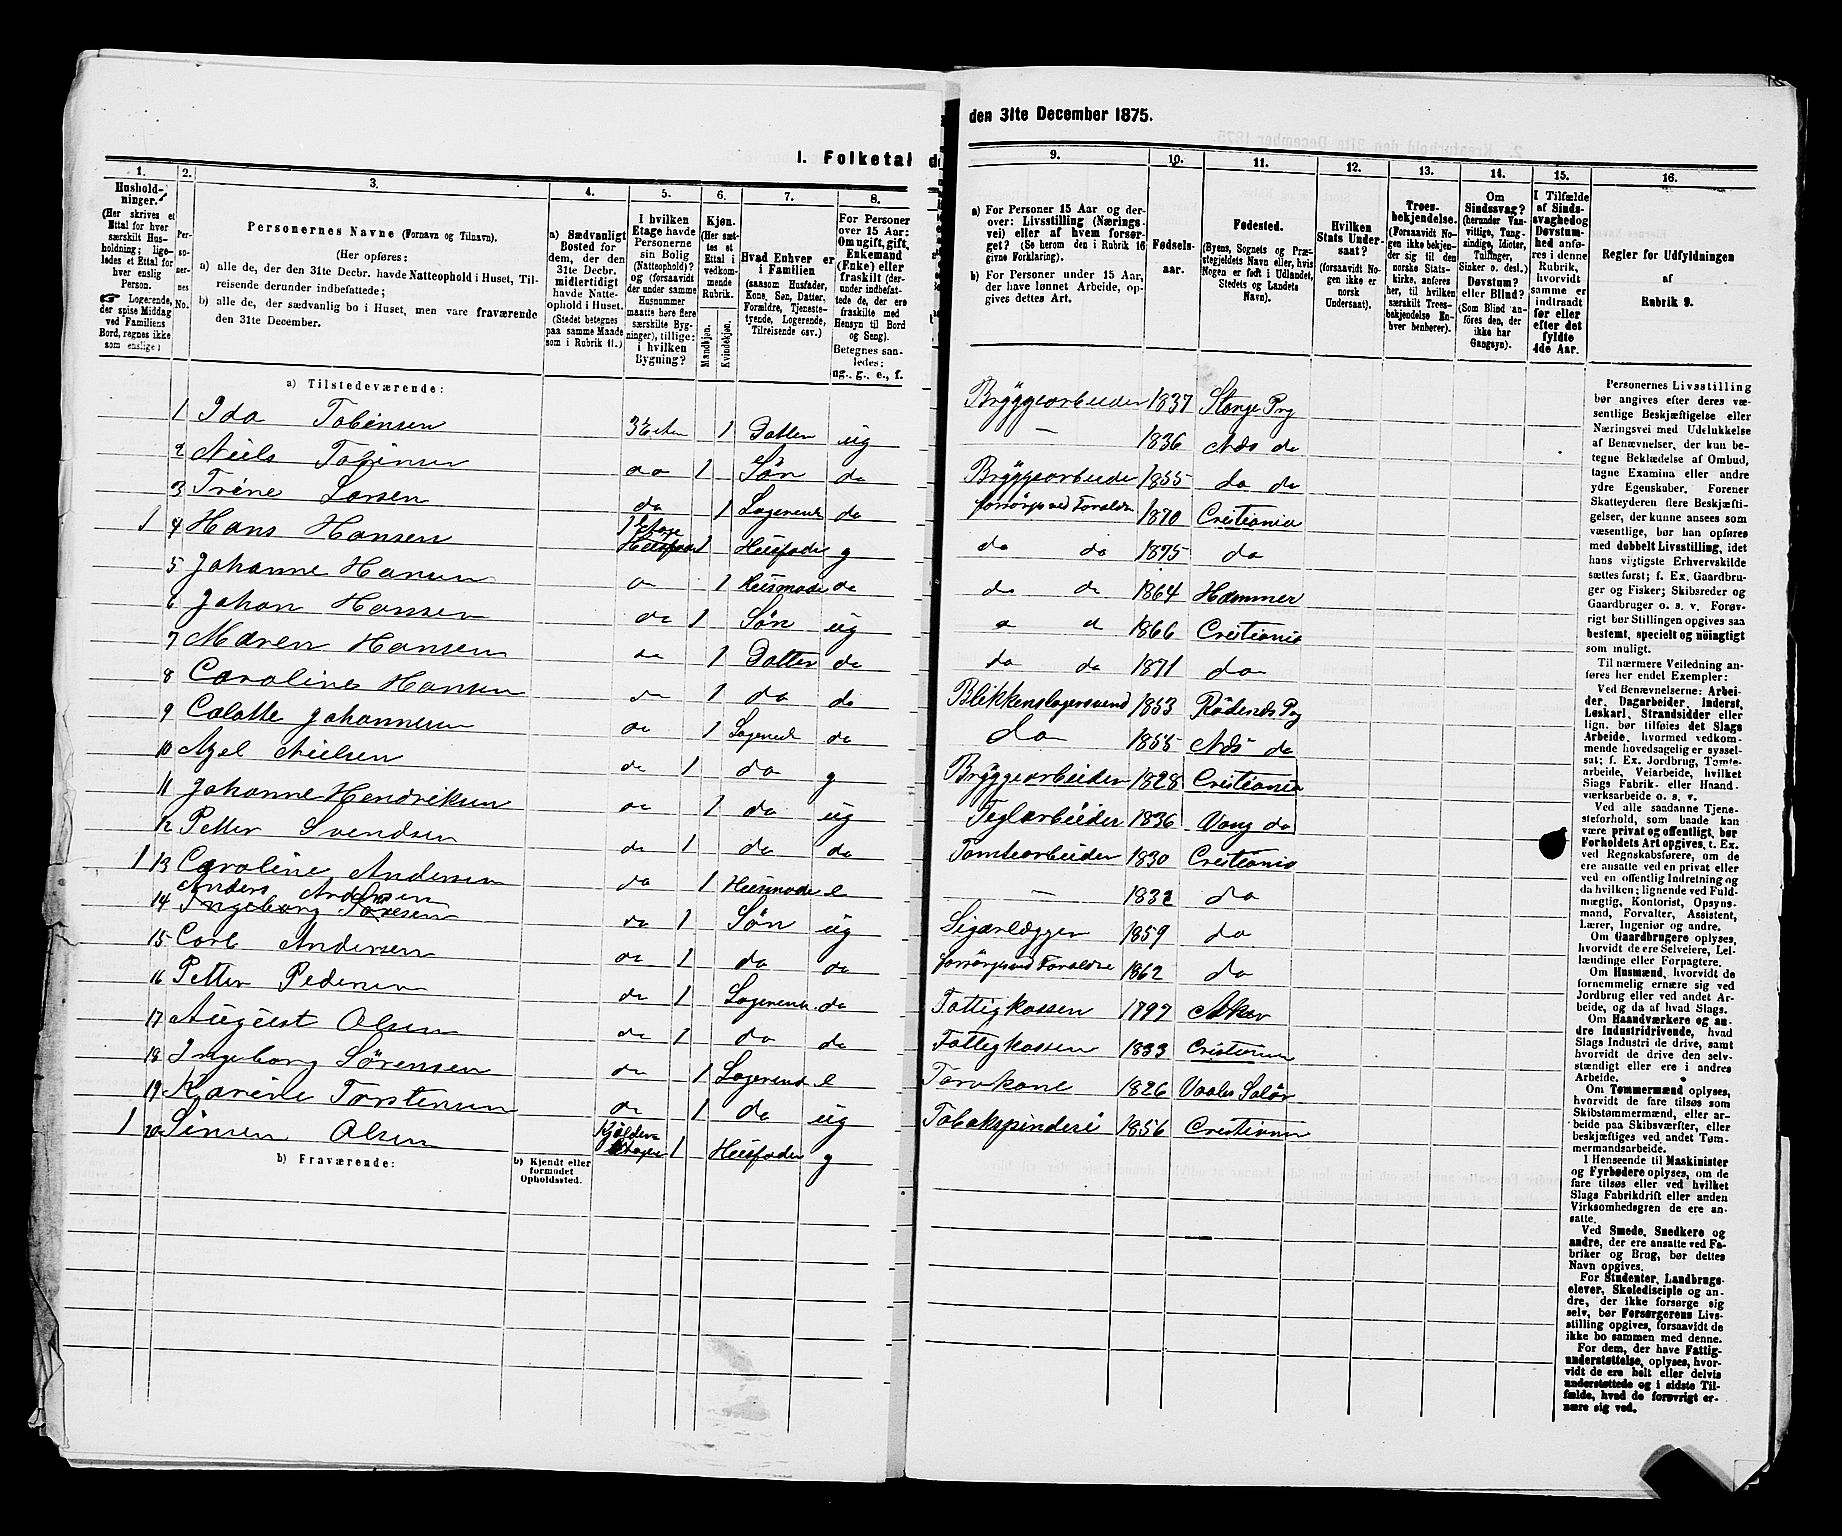 I. Folketal d
den 31te December 1875.
1.
Hushold-
ninger.
(Her skrives et
Ettal for hver
særskilt Hus-
holdning; lige-
ledes et Ettal for
hver enslig
Person.
☞ Logerende,
der spise Middag
ved Familiens
Bord, regnes ikke
som enslige)
2.
Per-
so-
ner-
nes
No.
3.
Personernes Navne (Fornavn og Tilnavn).
(Her opføres:
a) alle de, der den 31te Decbr. havde Natteophold i Huset, Til-
reisende derunder indbefattede;
b) alle de, der sædvanlig bo i Huset, men vare fraværende
den 31te December.
4.
a) Sædvanligt
Bosted for
dem, der den
31te Decbr.
midlertidigt
havde Natte-
ophold i Huset.
(Stedet betegnes
paa samme Maade
som i Rubrik 11.)
5.
I hvilken
Etage havde
Personerne
sin Bolig
(Natteophold)?
og (forsaavidt
der under samme
Husnummer
maatte høre flere
særskilte Byg-
ninger), tillige:
i hvilken
Bygning?
6.
Kjøn.
(Her sæt-
tes et
Ettal i
vedkom-
mende
Rubrik.
Mandkjøn.
Kvindekjøn.
7.
Hvad Enhver er
i Familien
(saasom Husfader,
Kone, Søn, Datter,
Forældre, Tjeneste-
tyende, Logerende,
Tilreisende osv.)
8.
For Personer
over 15 Aar:
Om ugift, gift,
Enkemand
(Enke) eller
fraskilt
(derunder indbefat-
tede de, der ere
fraskilte med
Hensyn til Bord
og Seng).
Betegnes saa-
ledes:
ug., g., e., f.
9.
a) For Personer 15 Aar og der-
over: Livsstilling (Nærings-
vei) eller af hvem forsør-
get? (Se herom den i Rubrik 16
givne Forklaring).
b) For Personer under 15 Aar,
der have lønnet Arbeide, op-
gives dettes Art.
10.
Fødsels-
aar.
11.
Fødested.
(Byens, Sognets og Præ-
stegjeldets Navn eller, hvis
Nogen er født i Udlandet,
Stedets og Landets
Navn).
12.
Hvilken
Stats Under-
saat?
(forsaavidt No-
gen ikke er
norsk
Undersaat).
13.
Troes-
bekjendelse.
(Forsaavidt No-
gen ikke bekjen-
der sig til den
norske Stats-
kirke, anføres
her, til hvilken
særskilt Troes-
bekjendelse En-
hver henhører).
14.
Om
Sindssvag?
(herunder Van-
vittige, Tung-
sindige, Idioter,
Tullinger,
Sinker o. desl.)
Døvstum?
eller Blind?
(Som Blind an-
føres den, der
ikke har
Gangsyn).
15.
I Tilfælde
af Sinds-
svaghed og
Døvstum-
hed anfø-
res i denne
Rubrik,
hvorvidt
samme er
indtraadt
før eller
efter det
fyldte
4de Aar.
16.
Regler for Udfyldningen
af
Rubrik 9.
a) Tilstedeværende:
1 Ida Tobinsen 3 Eta 1 Datter ug Bryggearbeider 1837 Stange Prg
2 Niels Tobinsen do 1 Søn do — 1836 Næs do
3 Trine Larsen do 1 Logerend do Bryggearbeide 1855 do do
1 4 Hans Hansen 1 Etage 1 Huusfade g forsørges ved Foraldre 1870 Cristiania
5 Johanne Hansen do 1 Huusmode do do do 1875 do
6 Johan Hansen do 1 Søn ug do do 1864 Hammer
7 Maren Hansen do 1 Datter do do do 1866 Cristiania
8 Caroline Hansen do 1 do do do do 1871 do
9 Calotte Johannesen do 1 Logerend do Blikkenslagersvend 1853 Rödenæs Pg
10 Axel Nielsen do 1 do g do 1855 Næs do
11 Johanne Hendriksen do 1 do ug Bryggearbeider 1828 Cristiania
12 Petter Svendsen do 1 do do Teglarbeider 1836 Vang do
1 13 Caroline Andersen do 1 Huusmode e Tomtearbeider 1830 Cristiania
Anders Andersen
14 Ingeborg do 1 Søn ug — 1832 do
15 Carl Andersen do 1 do do Sigarlægger 1859 do
16 Petter Pedersen do 1 Logerend do forsørges ved Foraldre 1862 do
17 August Olsen do 1 do do Fattigkassen 1797 Aker
18 Ingeborg Sörensen do 1 Logerend e Fattigkassen 1833 Cristiania
19 Karine Torstensen do 1 do ug Torvkone 1826 Vaaler Solör
1 20 Simen Olsen Kjölder Etagen 1 Huusfader g Tobakspinderi 1856 Cristiania
b) Fraværende:
b) Kjendt eller
formodet
Opholdssted.
Personernes Livsstilling
bør angives efter deres væ-
sentlige Beskjæftigelse eller
Næringsvei med Udelukkelse
af Benævnelser, der kun be-
tegne Beklædelse af Ombud,
tagne Examina eller andre
ydre Egenskaber. Forener
Skatteyderen flere Beskjæfti-
gelser, der kunne ansees som
væsentlige, bør han opføres
med dobbelt Livsstilling, idet
hans vigtigste Erhvervskilde
sættes først; f. Ex. Gaardbru-
ger og Fisker; Skibsreder og
Gaardbruger o. s. v. Forøv-
rigt bør Stillingen opgives saa
bestemt, specielt og nöiagtigt
som muligt.
Til nærmere Veiledning an-
føres her endel Exempler:
Ved Benævnelserne: Arbei-
der, Dagarbeider, Inderst,
Løskarl, Strandsidder eller
lign. bør tilføies det Slags
Arbeide, hvormed vedkom-
mende hovedsagelig er syssel-
sat; f. Ex. Jordbrug, Tomte-
arbeide, Veiarbeide, hvilket
Slags Fabrik- eller Haand-
værksarbeide o. s. v.
Ved alle saadanne Tjene-
steforhold, som baade kan
være privat og offentligt, bør
Forholdets Art opgives, t. Ex.
ved Regnskabsførere, om de
ere ansatte ved en privat eller
ved en offentlig Indretning og
da hvilken; lignende ved Fuld-
mægtig, Kontorist, Opsyns-
mand, Forvalter, Assistent,
Lærer, Ingeniør og andre.
Om Gaardbrugere oplyses,
hvorvidt de ere Selveiere, Lei-
lændinge eller Forpagtere.
Om Husmænd, hvorvidt de
fornemmelig ernære sig ved
Jordbrug eller ved andet Ar-
beide, og da af hvad Slags.
Om Haandværkere og an-
dre Industridrivende, hvad
Slags Industri de drive, samt
hvorvidt de drive den selv-
stændigt eller ere i andres
Arbeide.
Om Tømmermænd oplyses,
hvorvidt de fare tilsøs som
Skibstømmermænd, eller ar-
beide paa Skibsværfter, eller
beskjæftiges ved andet Tøm-
mermandsarbeide.
I Henseende til Maskinister
og Fyrbødere oplyses, om de
fare tilsøs eller ved hvilket
Slags Fabrikdrift eller anden
Virksomhedsgren de ere an-
satte.
Ved Smede, Snedkere og
andre, der ere ansatte ved Fa-
briker og Brug, bør dettes
Navn opgives.
For Studenter, Landbrugs-
elever, Skoledisciple og an-
dre, der ikke forsørge sig
selv, bør Forsørgerens Livs-
stilling opgives, forsaavidt de
ikke bo sammen med denne.
For dem, der have Fattig-
understøttelse, oplyses, hvor-
vidt de ere helt eller delvis
understøttede og i sidste Til-
fælde, hvad de forøvrigt er-
nære sig ved.